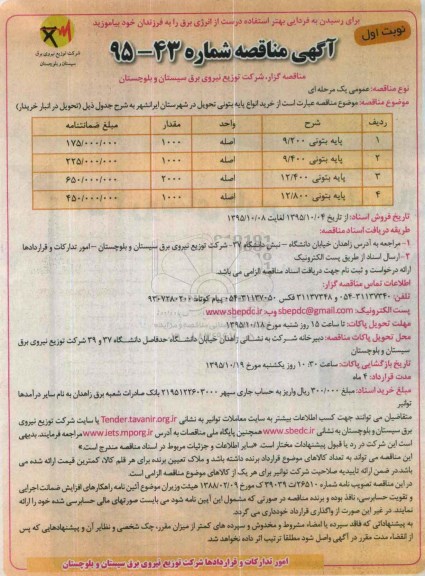 برای رسیدن به فردایی بهتر استفاده درست از انرژی برق را به فرزندان خود بیاموزید
نوبت اول
شرکت توزیع نیروی برق
سیستان و بلوچستان
آگهی مناقصه شماره ۴۳-۹۵
مناقصه گزار: شرکت توزیع نیروی برق سیستان و بلوچستان
نوع مناقصه: عمومی یک مرحله ای
موضوع مناقصه: موضوع مناقصه عبارت است از خرید انواع پایه بتونی تحویل در شهرستان ایرانشهر به شرح جدول ذیل (تحویل در انبار خریدار)
ردیف شرح واحد مقدار مبلغ ضمانتنامه
۱ پایه بتونی ۹/۲۰۰ اصله ۱۰۰۰ ۱۷۵/۰۰۰/۰۰۰
۲ پایه بتونی ۹/۴۰۰ اصله ۱۰۰۰ ۲۲۵/۰۰۰/۰۰۰
۳ پایه بتونی ۱۲/۴۰۰ اصله ۲۰۰۰ ۶۵۰/۰۰۰/۰۰۰
۴ پایه بتونی ۱۲/۸۰۰ اصله ۱۰۰۰ ۴۵۰/۰۰۰/۰۰۰
تاریخ فروش اسناد: از تاریخ ۱۳۹۵/۱۰/۰۴ لغایت ۱۳۹۵/۱۰/۰۸
طریقه دریافت اسناد مناقصه:
۱- مراجعه به آدرس زاهدان خیابان دانشگاه - نبش دانشگاه ۳۷- شرکت توزیع نیروی برق سیستان و بلوچستان -- امور تدارکات و قراردادها
۲- ارسال اسناد از طریق پست الکترونیک
ارائه درخواست و ثبت نام جهت دریافت اسناد مناقصه الزامی می باشد.
اطلاعات تماس مناقصه گزار:
تلفن: ۳۱۱۳۷۳۴۰-۰۵۴ و ۳۱۱۳۷۳۴۸ فکس ۳۱۱۳۷۰۵۰-۰۵۴ پیام کوتاه:
پست الکترونیک: sbepdc@gmail.com وب: www.sbepdc.ir
مهلت تحویل پاکات: تا ساعت ۱۵ روز شنبه مورخ ۱۳۹۵/۱۰/۱۸
محل تحویل پاکات مناقصه: دبیرخانه شرکت به نشانی زاهدان خیابان دانشگاه حدفاصل دانشگاه ۳۷ و ۳۹ شرکت توزیع نیروی برق
سیستان و بلوچستان
تاریخ بازگشایی پاکات: ساعت ۱۰:۳۰ روز یکشنبه مورخ ۱۳۹۵/۱۰/۱۹
مدت قرارداد: ۴ ماه
مبلغ خرید اسناد: مبلغ ۳۰۰/۰۰۰ ریال واریز به حساب جاری سپهر ۲۱۹۵۱۲۲۶۰۳۰۰۰ بانک صادرات شعبه برق زاهدان به نام سایر درآمدها
توانیر
متقاضیان می توانند جهت کسب اطلاعات بیشتر به سایت معاملات توانیر به نشانی Tender.tavanir.org.ir یا سایت شرکت توزیع نیروی
برق سیستان و بلوچستان به نشانی www.sbedc.ir همچنین پایگاه ملی مناقصات به آدرس www.iets.mporg.ir مراجعه فرمایند. بدیهی
است این شرکت در رد یا قبول پیشنهادات مختار است «سایر اطلاعات و جزئیات مربوط در اسناد مناقصه مندرج است»
این مناقصه می تواند به تعداد کالاهای موضوع قرارداد برنده داشته باشد و ملاک تعیین برنده برای هر قلم کالا، کمترین قیمت ارائه شده می
باشد در ضمن ارائه تاییدیه صلاحیت شرکت توانیر برای هر یک از کالاهای موضوع مناقصه الزامی است
در این مناقصه تصویب نامه شماره ۲۶۵۱۰/ت ۳۹۰۳۹ ک مورخ ۱۳۸۸/۰۲/۰۹ هیئت وزیران موضوع آئین نامه راهکارهای افزایش ضمانت اجرایی
و تقویت حسابرسی، نافذ بوده و برنده مناقصه در صورتی که مشمول این آیین نامه شود می بایست صورتهای مالی حسابرسی شده خود را ارائه
نمایند. در غیر این صورت از واگذاری قرارداد خودداری می گردد.
به پیشنهاداتی که فاقد سپرده یا امضاء مشروط و مخدوش و سپرده های کمتر از میزان مقرر، چک شخصی و نظایر آن و پیشنهادهایی که پس از
انقضاء مدت مقرر در آگهی واصل شود مطلقا ترتیب اثر داده نخواهد شد.
امور تدارکات و قراردادها شرکت توزیع نیروی برق سیستان و بلوچستان